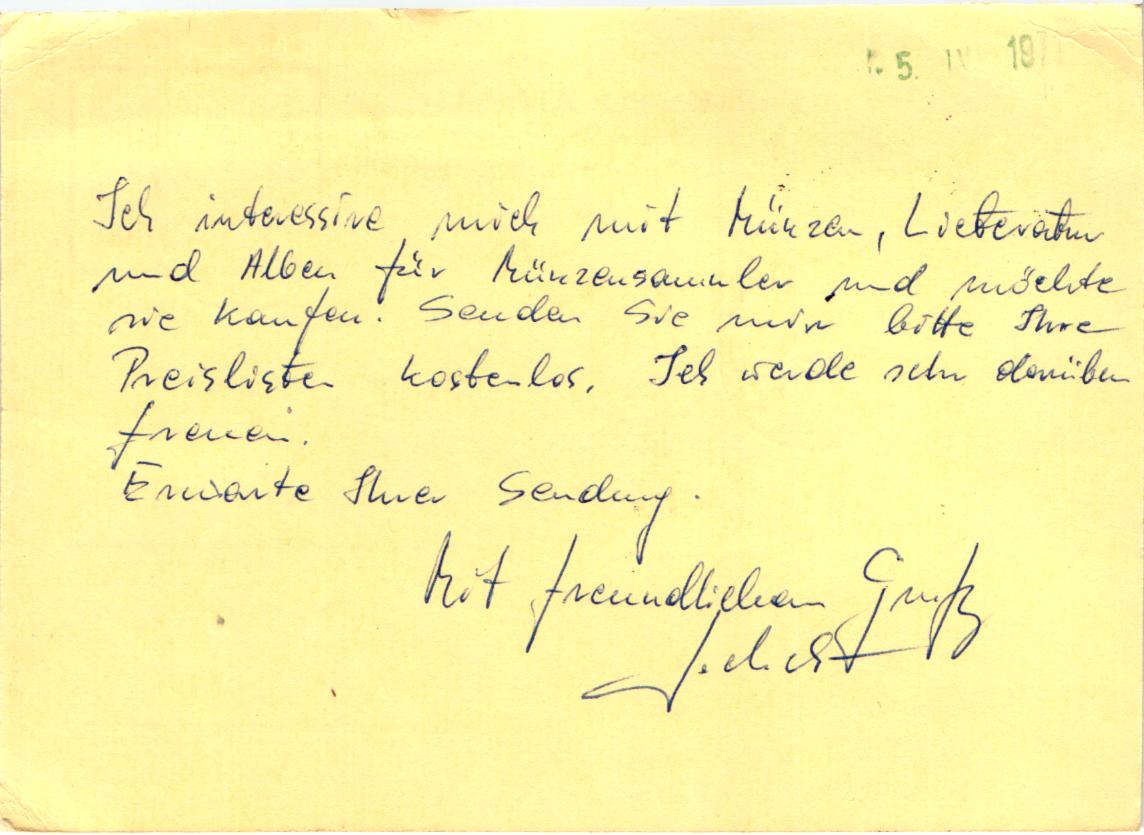 5. IV 197
Ich interessire mich mit Münzen, Lieteratur
und Alben für Münzensammler und möchte
sie kaufen. Senden Sie mir bitte Ihre
Preislisten kostenlos. Ich werde sehr darüben
freuen.
Erwarte Ihrer Sendung.
Mit freundlichem Gruß